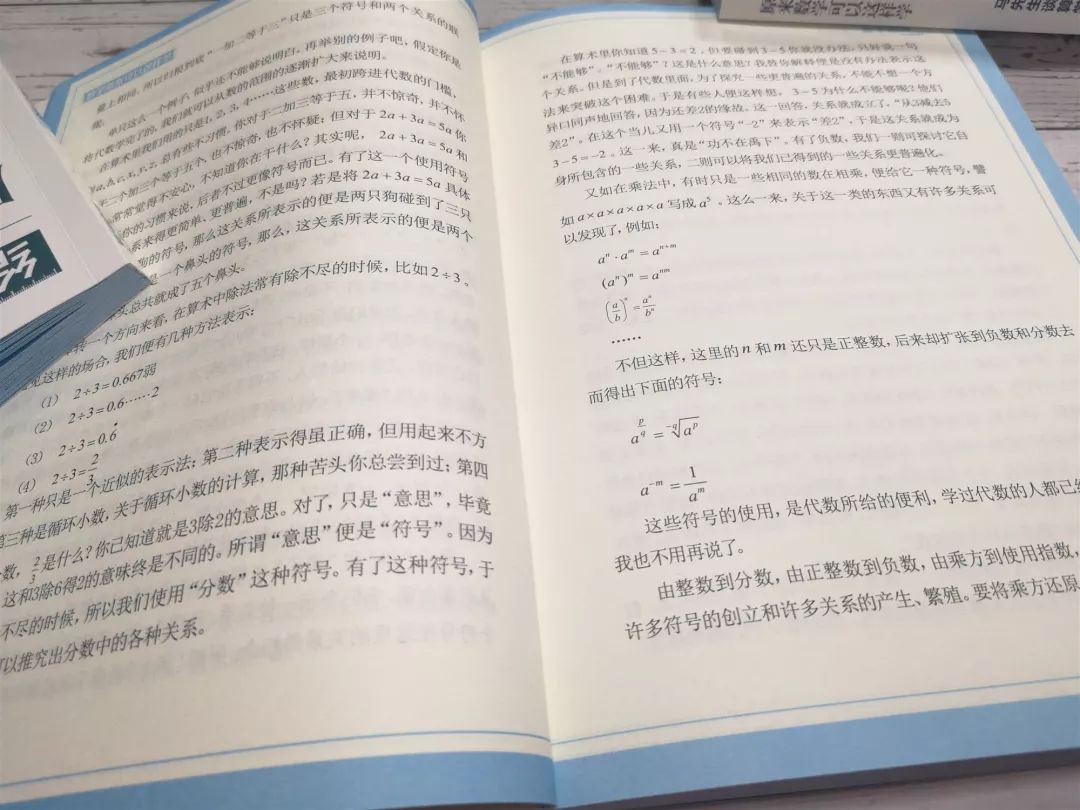 量上相同。所以归根到底“一加二等于三”只是三个符号和两个关系的顺
单只这么一个例子，似乎还不能够说明白，再举别的例子吧，假定你是
将代数学完了的，我们就可以从数的范围的逐渐扩大来说明。
在算术里我们用的只是1，2，3，4……这些数，最初跨进代数的门槛，
a，b，c，x，y，z，总有些不大习惯。你对于二加三等于五，并不惊奇，并不怀
二个加三个等于五个，也不惊奇，也不怀疑；但对于 2a + 3a = 5a 你
常常觉得不安心，不知道你在干什么？其实呢， 2a + 3a = 5a 和
你的习惯来说，后者不过更像符号而已。有了这一个使用符号
系来得更简单、更普遍，不是吗？若是将 2a + 3a = 5a 具体
狗的符号，那么这关系所表示的便是两只狗碰到了三只
是一个鼻头的符号，那么，这关系所表示的便是两个
头总共就成了五个鼻头。
转一个方向来看，在算术中除法常有除不尽的时候，比如 2 ÷ 3 。
见这样的场合，我们便有几种方法表示：
（1） 2 ÷ 3 = 0.667弱
（2） 2 ÷ 3 = 0.6……2
（3） 2 ÷ 3 = 0.6̇
（4） 2 ÷ 3 = 2/3
第一种只是一个近似的表示法；第二种表示得虽正确，但用起来不方
第三种是循环小数，关于循环小数的计算，那种苦头你总尝到过；第四
数，2/3 是什么？你已知道就是3除2的意思。对了，只是“意思”，毕竟
这和3除6得2的意味终是不同的。所谓“意思”便是“符号”。因为
不尽的时候，所以我们使用“分数”这种符号。有了这种符号，于
可以推究出分数中的各种关系。
原来数学可以这样学
马先生谈算学
在算术里你知道 5 − 3 = 2，但要碰到 3 − 5 你就没办法，只好说一句
“不能够”。“不能够”？这是什么意思？我替你解释便是没有办法表示这
个关系。但是到了代数里面，为了探究一些更普遍的关系，不能不想一个方
法来突破这个困难。于是有些人便这样想， 3 − 5 为什么不能够呢？他们
异口同声地回答，因为还差2的缘故。这一回答，关系就成立了，“从3减去5
差2”。在这个当儿又用一个符号“-2”来表示“差2”，于是这关系就成为
3 − 5 = −2 。这一来，真是“功不在禹下”。有了负数，我们一则可探讨它自
身所包含的一些关系，二则可以将我们已得到的一些关系更普遍化。
又如在乘法中，有时只是一些相同的数在相乘，便给它一种符号，譬
如 a × a × a × a × a 写成 a⁵ 。这么一来，关于这一类的东西又有许多关系可
以发现了，例如：
aⁿ · aᵐ = aⁿ⁺ᵐ
(aⁿ)ᵐ = aⁿᵐ
(a/b)ⁿ = aⁿ/bⁿ
……
不但这样，这里的 n 和 m 还只是正整数，后来却扩张到负数和分数去
而得出下面的符号：
a^(p/q) = ^(-q)√(aᵖ)
a⁻ᵐ = 1/aᵐ
这些符号的使用，是代数所给的便利，学过代数的人都已经
我也不用再说了。
由整数到分数，由正整数到负数，由乘方到使用指数，
许多符号的创立和许多关系的产生、繁殖。要将乘方还原